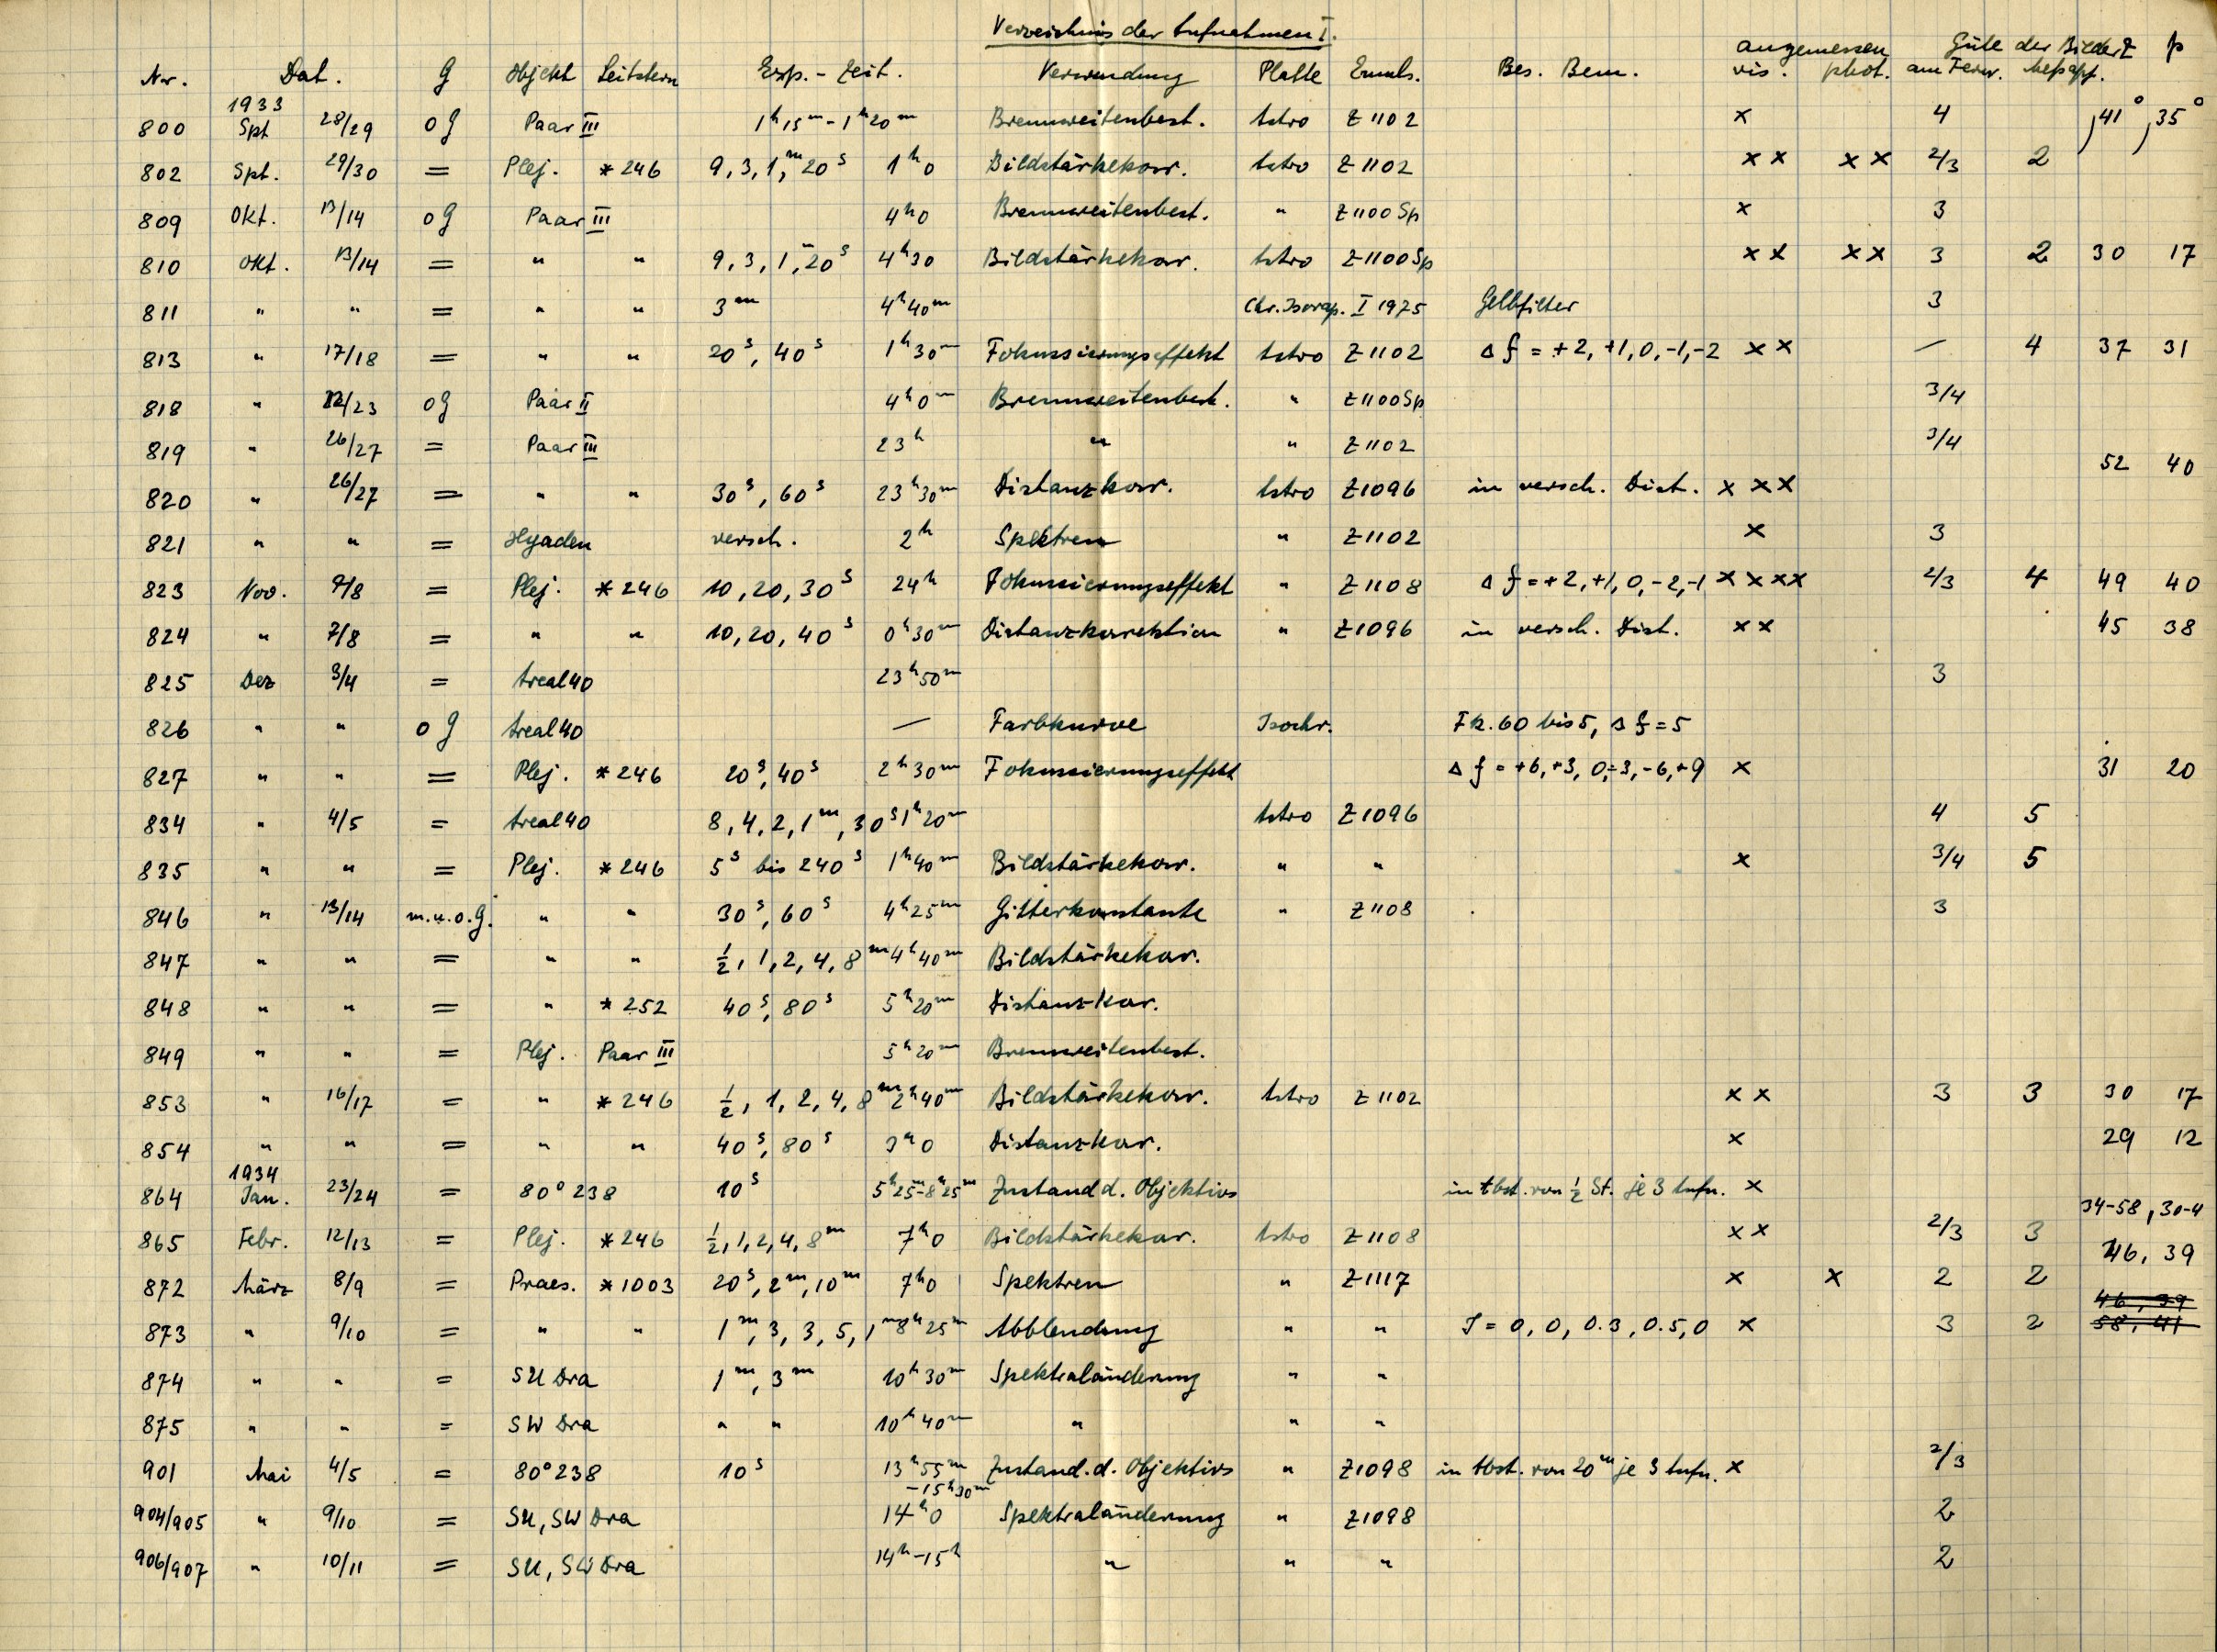 Verzeichnis der Aufnahmen I.
Nr. Dat. G Objekt Leitstern Exp.-Zeit. Verwendung Platte Emuls. Bes. Bem. angemessen vis. phot. Güte der Bilder am Fernr. Meßapp. z p
1933
800 Spt 28/29 o G Paar III 1h15m-1h20m Brennweitenbest. Astro Z1102 x 4 41° 35°
802 Spt. 29/30 = Plej. *246 9,3,1m,20s 1h0 Bildstärkekorr. Astro Z1102 xx xx 2/3 2
809 Okt. 13/14 o G Paar III 4h0 Brennweitenbest. " Z1100Sp x 3
810 Okt. 13/14 = " " 9,3,1m,20s 4h30 Bildstärkekorr. Astro Z1100Sp xx xx 3 2 30 17
811 " " = " " 3m 4h40m Chr. Isorap. I 1975 Gelbfilter 3
813 " 17/18 = " " 20s,40s 1h30m Fokussierungseffekt Astro Z1102 Δf = +2,+1,0,-1,-2 xx — 4 37 31
818 " 22/23 o G Paar II 4h0m Brennweitenbest. " Z1100Sp 3/4
819 " 26/27 = Paar III 23h " " Z1102 3/4
820 " 26/27 = " " 30s,60s 23h30m Distanzkorr. Astro Z1096 in versch. Dist. xxx 52 40
821 " " = Hyaden versch. 2h Spektren " Z1102 x 3
823 Nov. 7/8 = Plej. *246 10,20,30s 24h Fokussierungseffekt " Z1108 Δf = +2,+1,0,-2,-1 xxxx 2/3 4 49 40
824 " 7/8 = " " 10,20,40s 0h30m Distanzkorrektion " Z1096 in versch. Dist. xx 45 38
825 Dez 3/4 = Areal 40 23h50m 3
826 " " o G Areal 40 — Farbkurve Isochr. Fk. 60 bis 5, Δf = 5
827 " " = Plej. *246 20s,40s 2h30m Fokussierungseffekt Δf = +6,+3,0,-3,-6,+9 x 31 20
834 " 4/5 = Areal 40 8,4,2,1m,30s 1h20m Astro Z1096 4 5
835 " " = Plej. *246 5s bis 240s 1h40m Bildstärkekorr. " " x 3/4 5
846 " 13/14 m.u.o.G. " " 30s,60s 4h25m Gitterkonstante " Z1108 3
847 " " = " " ½,1,2,4,8m 4h40m Bildstärkekorr.
848 " " = " *252 40s,80s 5h20m Distanzkorr.
849 " " = Plej. Paar III 5h20m Brennweitenbest.
853 " 16/17 = " *246 ½,1,2,4,8m 2h40m Bildstärkekorr. Astro Z1102 xx 3 3 30 17
854 " " = " " 40s,80s 3h0 Distanzkorr. x 29 12
1934
864 Jan. 23/24 = 80°238 10s 5h25m-8h25m Zustand d. Objektivs in Abst. von ½ St. je 3 Aufn. x 34-58, 30-4
865 Febr. 12/13 = Plej. *246 ½,1,2,4,8m 7h0 Bildstärkekorr. Astro Z1108 xx 2/3 3 46, 39
872 März 8/9 = Praes. *1003 20s,2m,10m 7h0 Spektren " Z1117 x x 2 2 46, 39
873 " 9/10 = " " 1m,3,3,5,1m 8h25m Abblendung " " J = 0,0,0.3,0.5,0 x 3 2 58, 41
874 " " = SU Dra 1m,3m 10h30m Spektraländerung " "
875 " " = SW Dra " " 10h40m " " "
901 Mai 4/5 = 80°238 10s 13h55m -15h30m Zustand. d. Objektivs " Z1098 in Abst. von 20m je 3 Aufn. x 2/3
904/905 " 9/10 = SU, SW Dra 14h0 Spektraländerung " Z1098 2
906/907 " 10/11 = SU, SW Dra 14h-15h " " " 2